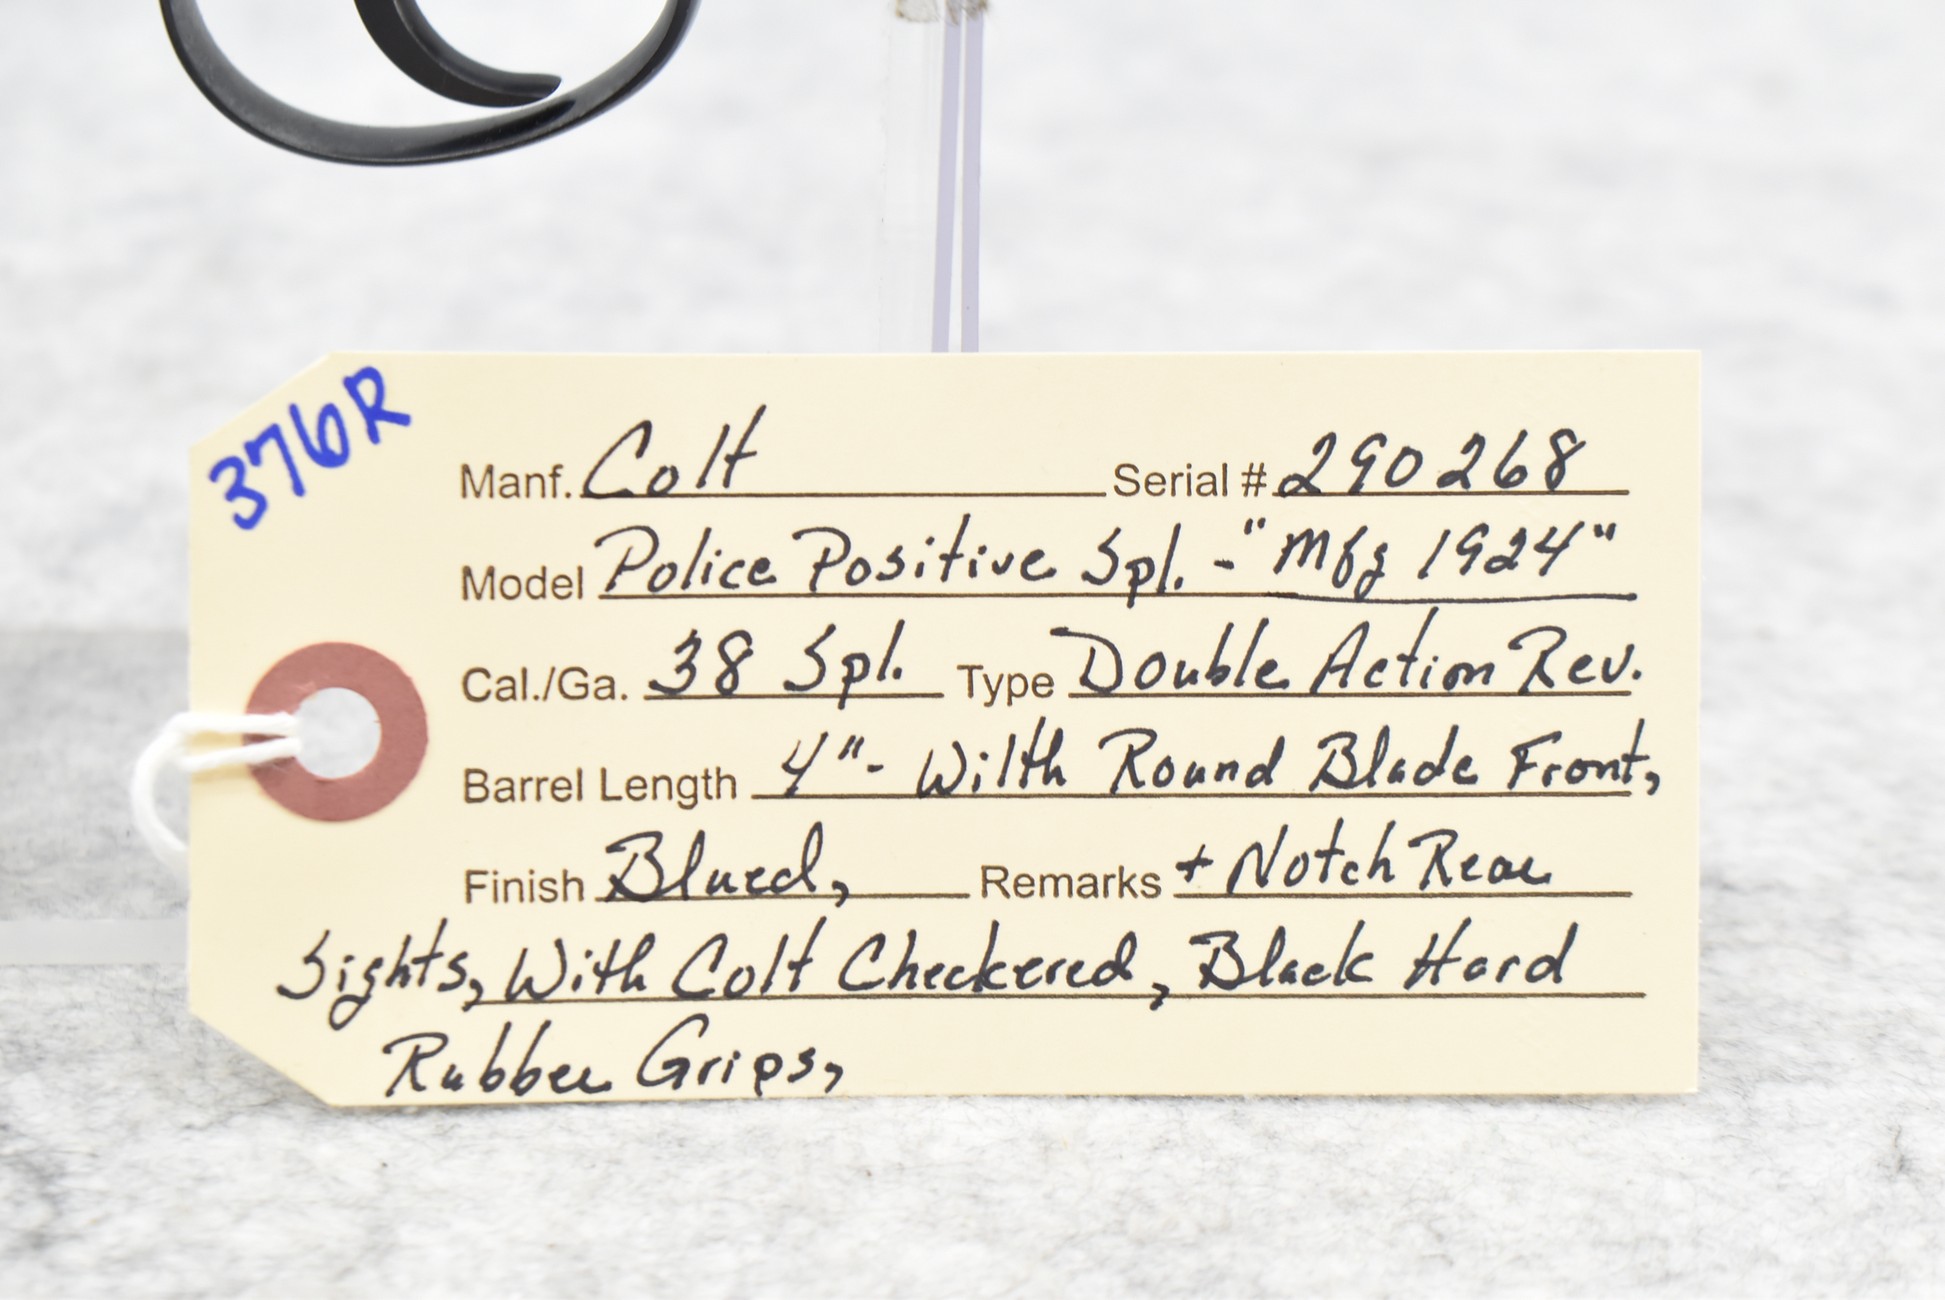 376R
Manf. Colt Serial # 290268
Model Police Positive Spl. - "Mfg 1924"
Cal./Ga. 38 Spl. Type Double Action Rev.
Barrel Length 4" - Wilth Round Blade Front,
Finish Blued, Remarks + Notch Rear
Sights, With Colt Checkered, Black Hard
Rubber Grips,